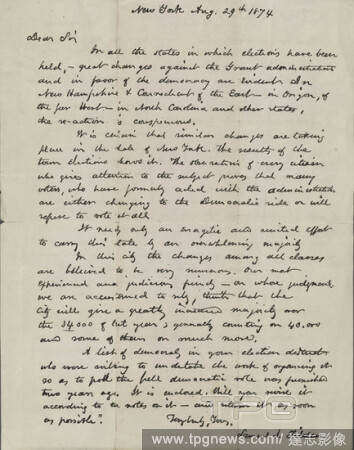 New York Aug. 29th 1874
Dear Sir
In all the states in which elections have been
held, - great changes against the Grant administration
and in favor of the democracy are evident In
New Hampshire & Connecticut of the East - in Oregon, of
the far West - in North Carolina and other states,
the re-action is conspicuous.
It is certain that similar changes are taking
place in the State of New York. The results of the
town elections shows it. The observation of every citizen
who gives attention to the subject proves that many
voters, who have formerly acted with the administration
are either changing to the Democratic side or will
refuse to vote at all
It needs only an energetic and united effort
to carry this state by an overwhelming majority
In this city the changes among all classes
are believed to be very numerous. Our most
experienced and judicious friends - on whose judgment
we are accustomed to rely, think that the
City will give a greatly increased majority over
the 34000 of last year; generally counting on 40.000
and some of them on much more.
A list of democrats in your election district
who were willing to undertake the work of organizing it
so as to poll the full democratic vote was furnished
two years ago. It is enclosed. Will you revise it
according to notes on it - and return it as soon
as possible".
Very truly Yours,
www.tpgnews.com 達志影像